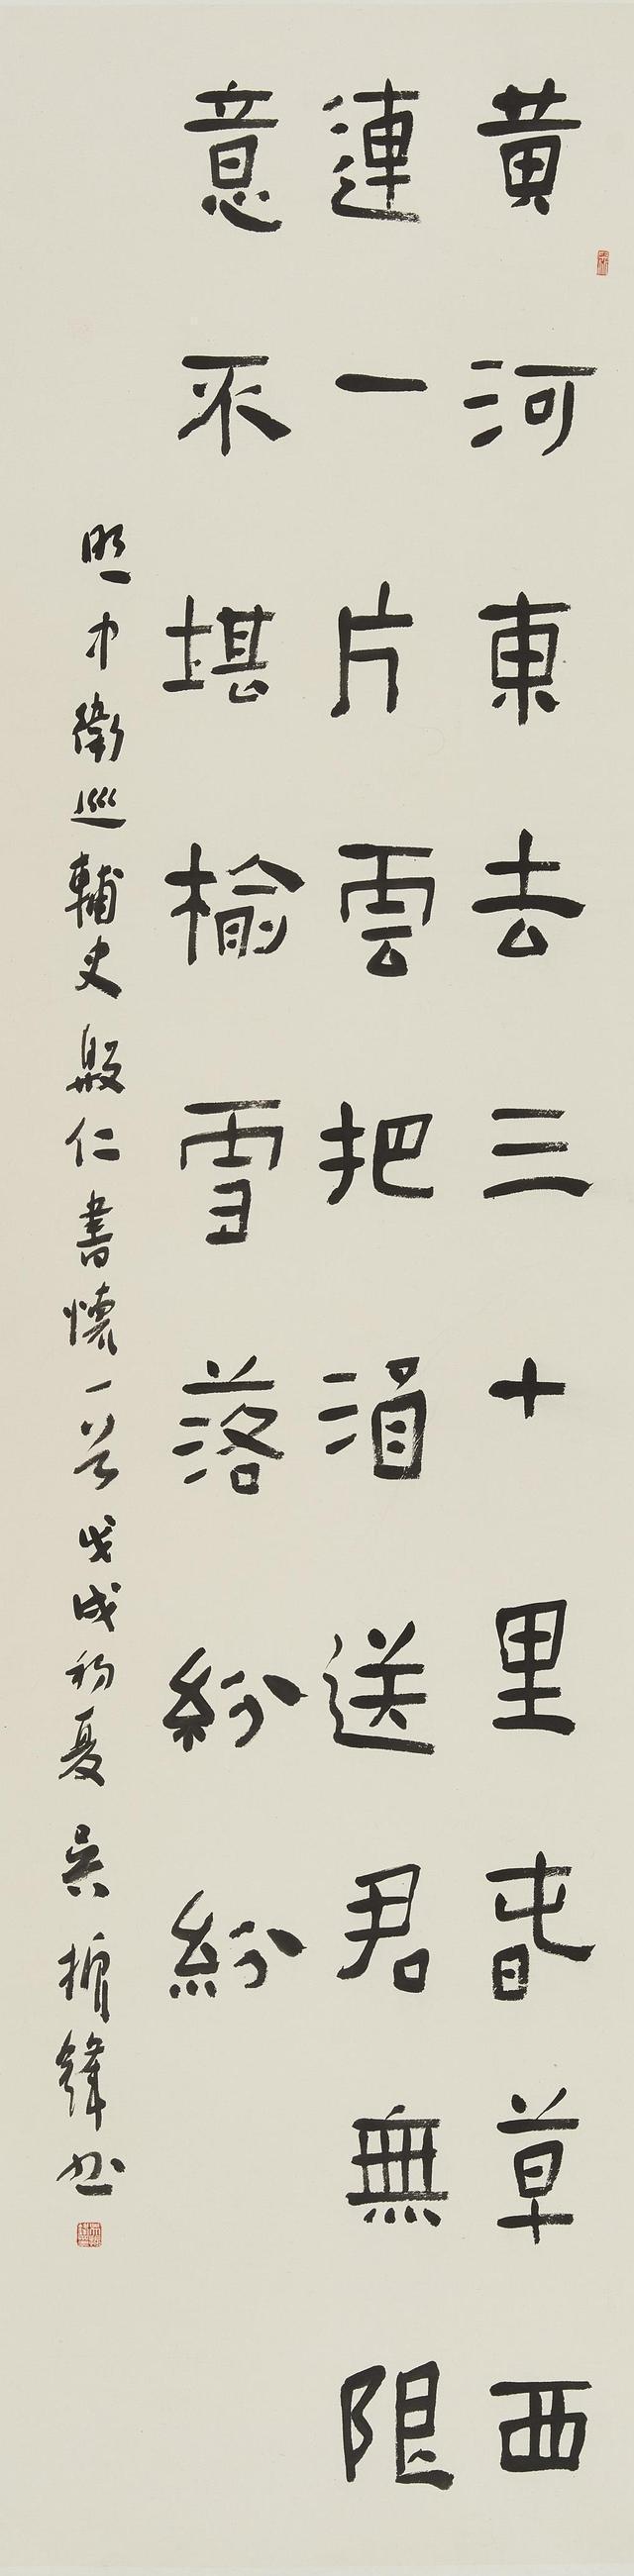 黄河東去三十里春草西
連一片雲把酒送君無限
意不堪榆雪落紛紛
明中衛巡輔史殷仁書懷一首戊戌初夏吴振鋒书